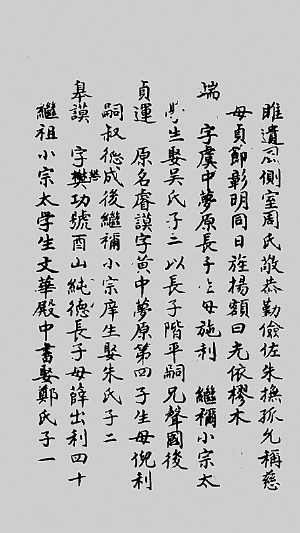 雎遺㤙側室周氏敬恭勤儉佐朱撫孤允稱慈
母貞節彰明同日旌揚額曰光依樛木
端　字虞中夢原長子母施利　繼禰小宗太
學生娶吳氏子二以長子階平嗣兄聲國後
貞運　原名睿謨字黄中夢原第四子生母倪利
嗣叔德成後繼禰小宗庠生娶朱氏子二
皋謨　字懋功號酉山純德長子母薛出利四十
繼祖小宗太学生文華殿中書娶鄭氏子一